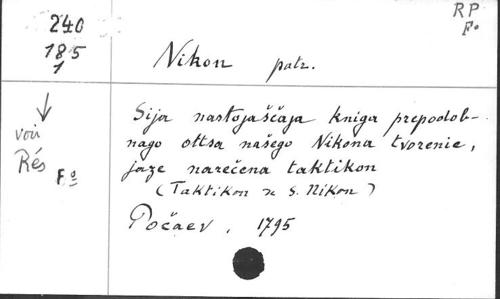 240
185
1
RP
F°
Nikon patr.
voir
Rés F°
Sija nastojaščaja kniga prepodob-
nago ottsa našego Nikona tvorenie,
jaze narečena taktikon
(Taktikon S. Nikon)
Počaev, 1795